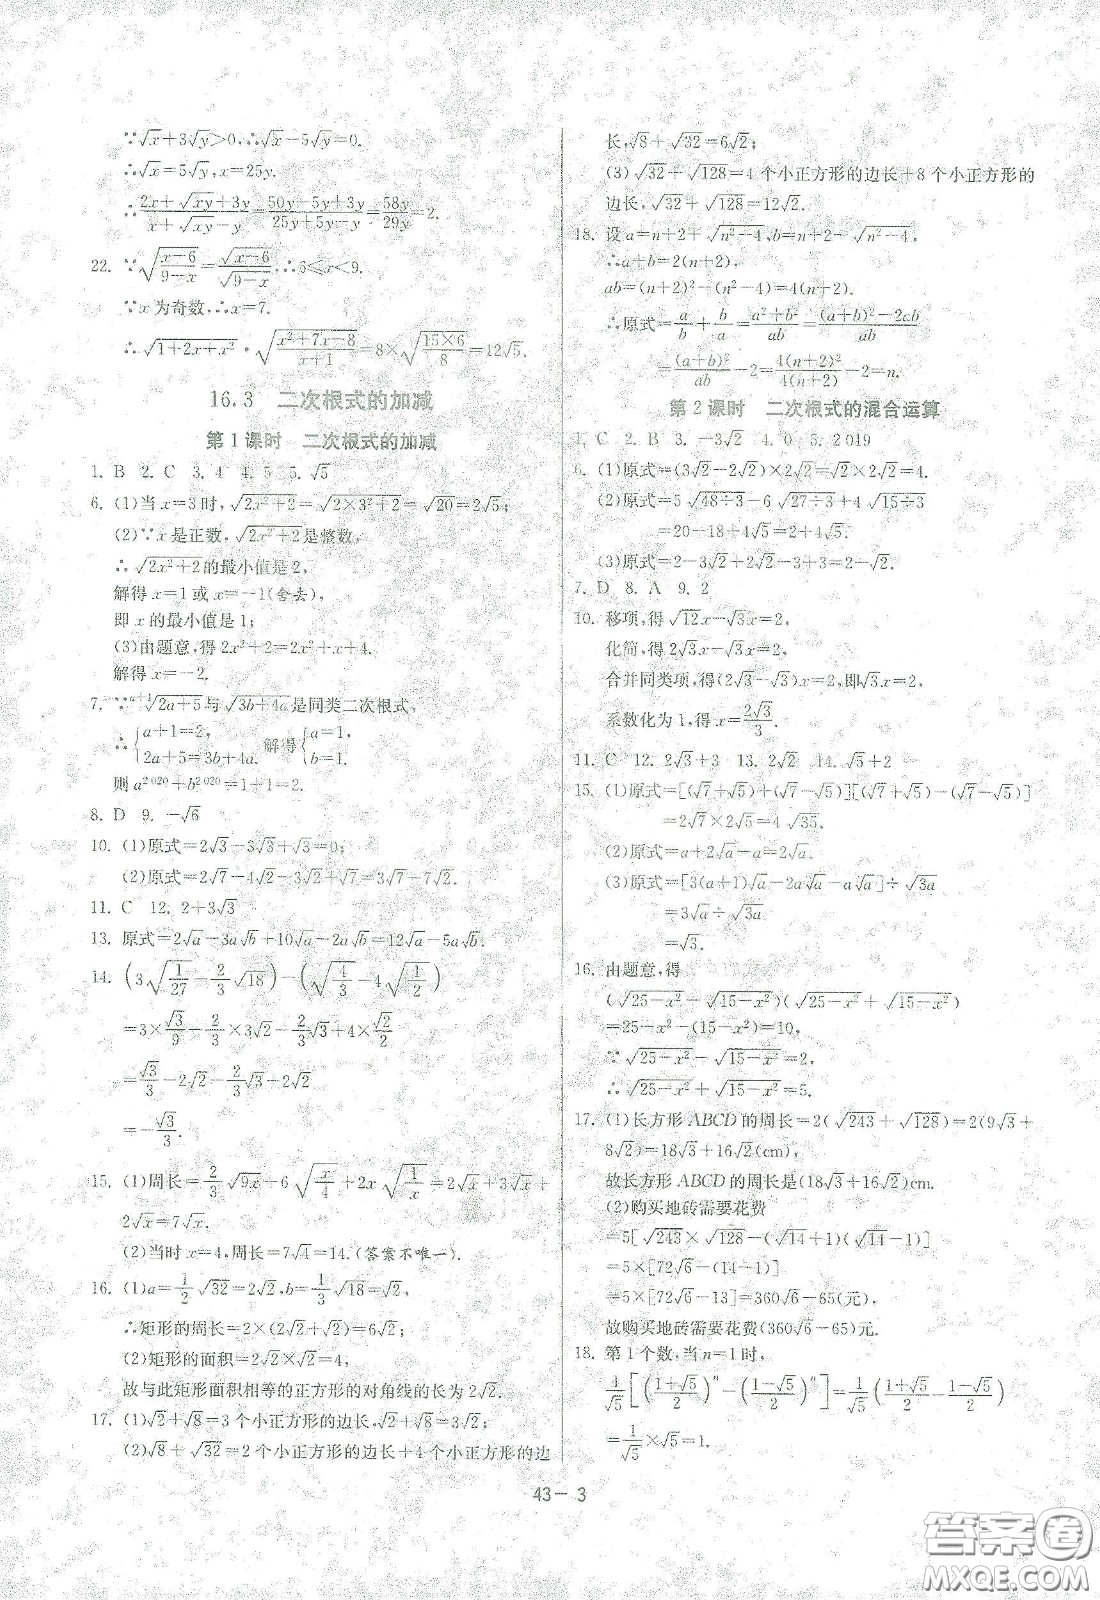 ∵√x+3√y>0,∴√x−5√y=0.
∴√x=5√y,x=25y.
∴(2x+√xy+3y)/(x+√xy−y)=(50y+5y+3y)/(25y+5y−y)=58y/29y=2.
22. ∵√((x−6)/(9−x))=√(x−6)/√(9−x),∴6⩽x<9.
∵x为奇数,∴x=7.
∴√(1+2x+x²)·√((x²+7x−8)/(x+1))=8×√((15×6)/8)=12√5.
16.3 二次根式的加减
第1课时 二次根式的加减
1. B 2. C 3. 4 4. 5 5. √5
6. (1)当x=3时,√(2x²+2)=√(2×3²+2)=√20=2√5;
(2)∵x是正数,√(2x²+2)是整数,
∴√(2x²+2)的最小值是2,
解得x=1或x=−1(舍去),
即x的最小值是1;
(3)由题意,得2x²+2=2x²+x+4.
解得x=−2.
7. ∵ᵃ⁺¹√(2a+5)与√(3b+4a)是同类二次根式,
∴{a+1=2, 2a+5=3b+4a. 解得{a=1, b=1.
则a²⁰²⁰+b²⁰²⁰=1+1=2.
8. D 9. −√6
10. (1)原式=2√3−3√3+√3=0;
(2)原式=2√7−4√2−3√2+√7=3√7−7√2.
11. C 12. 2+3√3
13. 原式=2√a−3a√b+10√a−2a√b=12√a−5a√b.
14. (3√(1/27)−2/3√18)−(√(4/3)−4√(1/2))
=3×√3/9−2/3×3√2−2/3√3+4×√2/2
=√3/3−2√2−2/3√3+2√2
=−√3/3.
15. (1)周长=2/3√9x+6√(x/4)+2x√(1/x)=2√x+3√x+
2√x=7√x.
(2)当时x=4,周长=7√4=14.(答案不唯一).
16. (1)a=1/2√32=2√2,b=1/3√18=√2,
∴矩形的周长=2×(2√2+√2)=6√2;
(2)矩形的面积=2√2×√2=4,
故与此矩形面积相等的正方形的对角线的长为2√2.
17. (1)√2+√8=3个小正方形的边长,√2+√8=3√2;
(2)√8+√32=2个小正方形的边长+4个小正方形的边
长,√8+√32=6√2;
(3)√32+√128=4个小正方形的边长+8个小正方形的
边长,√32+√128=12√2.
18. 设a=n+2+√(n²−4),b=n+2−√(n²−4),
∴a+b=2(n+2),
ab=(n+2)²−(n²−4)=4(n+2).
∴原式=a/b+b/a=(a²+b²)/ab=((a+b)²−2ab)/ab
=(a+b)²/ab−2=4(n+2)²/4(n+2)−2=n.
第2课时 二次根式的混合运算
1. C 2. B 3. −3√2 4. 0 5. 2 019
6. (1)原式=(3√2−2√2)×2√2=√2×2√2=4.
(2)原式=5√(48÷3)−6√(27÷3)+4√(15÷3)
=20−18+4√5=2+4√5.
(3)原式=2−3√2+2√2−3+3=2−√2.
7. D 8. A 9. 2
10. 移项,得√12x−√3x=2,
化简,得2√3x−√3x=2,
合并同类项,得(2√3−√3)x=2,即√3x=2,
系数化为1,得x=2√3/3.
11. C 12. 2√3+3 13. 2√2 14. √5+2
15. (1)原式=[(√7+√5)+(√7−√5)][(√7+√5)−(√7−√5)]
=2√7×2√5=4√35.
(2)原式=a+2√a−a=2√a.
(3)原式=[3(a+1)√a−2a√a−a√a]÷√3a
=3√a÷√3a
=√3.
16. 由题意,得
(√(25−x²)−√(15−x²))(√(25−x²)+√(15−x²))
=25−x²−(15−x²)=10,
∵√(25−x²)−√(15−x²)=2,
∴√(25−x²)+√(15−x²)=5.
17. (1)长方形ABCD的周长=2(√243+√128)=2(9√3+
8√2)=18√3+16√2(cm),
故长方形ABCD的周长是(18√3+16√2)cm.
(2)购买地砖需要花费
=5[√243×√128−(√14+1)(√14−1)]
=5×[72√6−(14−1)]
=5×[72√6−13]=360√6−65(元),
故购买地砖需要花费(360√6−65)元.
18. 第1个数,当n=1时,
1/√5[((1+√5)/2)ⁿ−((1−√5)/2)ⁿ]=1/√5((1+√5)/2−(1−√5)/2)
=1/√5×√5=1.
43—3
答案卷
MXQE.COM